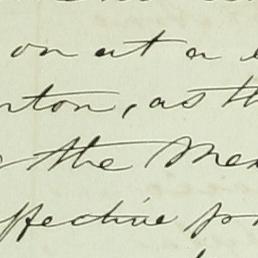 on at a
nton, as th
the Mex
effective for